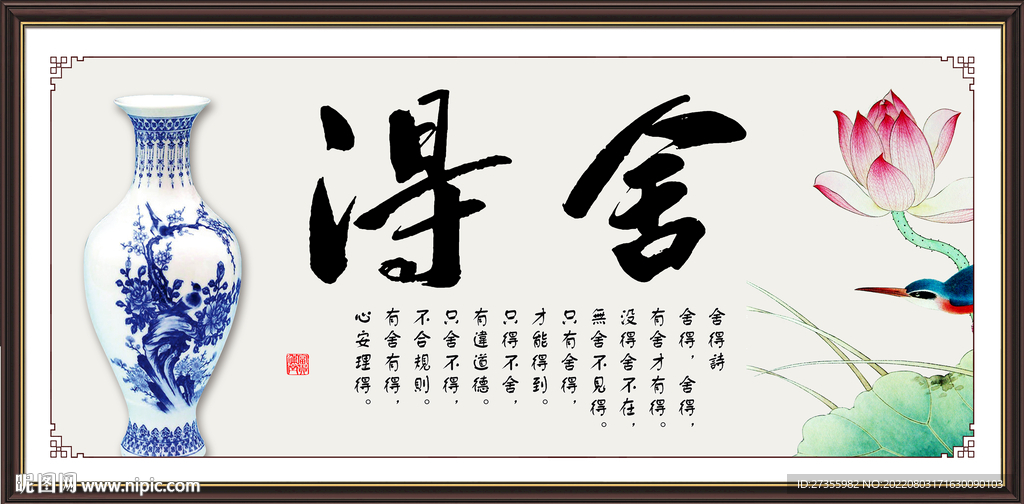 舍得
舍得詩
舍得，舍得，
有舍才有得。
没得舍不在，
無舍不見得。
只有舍得，
才能得到。
只得不舍，
有違道德。
只舍不得，
不合規則。
有舍有得，
心安理得。
昵图网 www.nipic.com
ID:27355982 NO:20220803171630090103